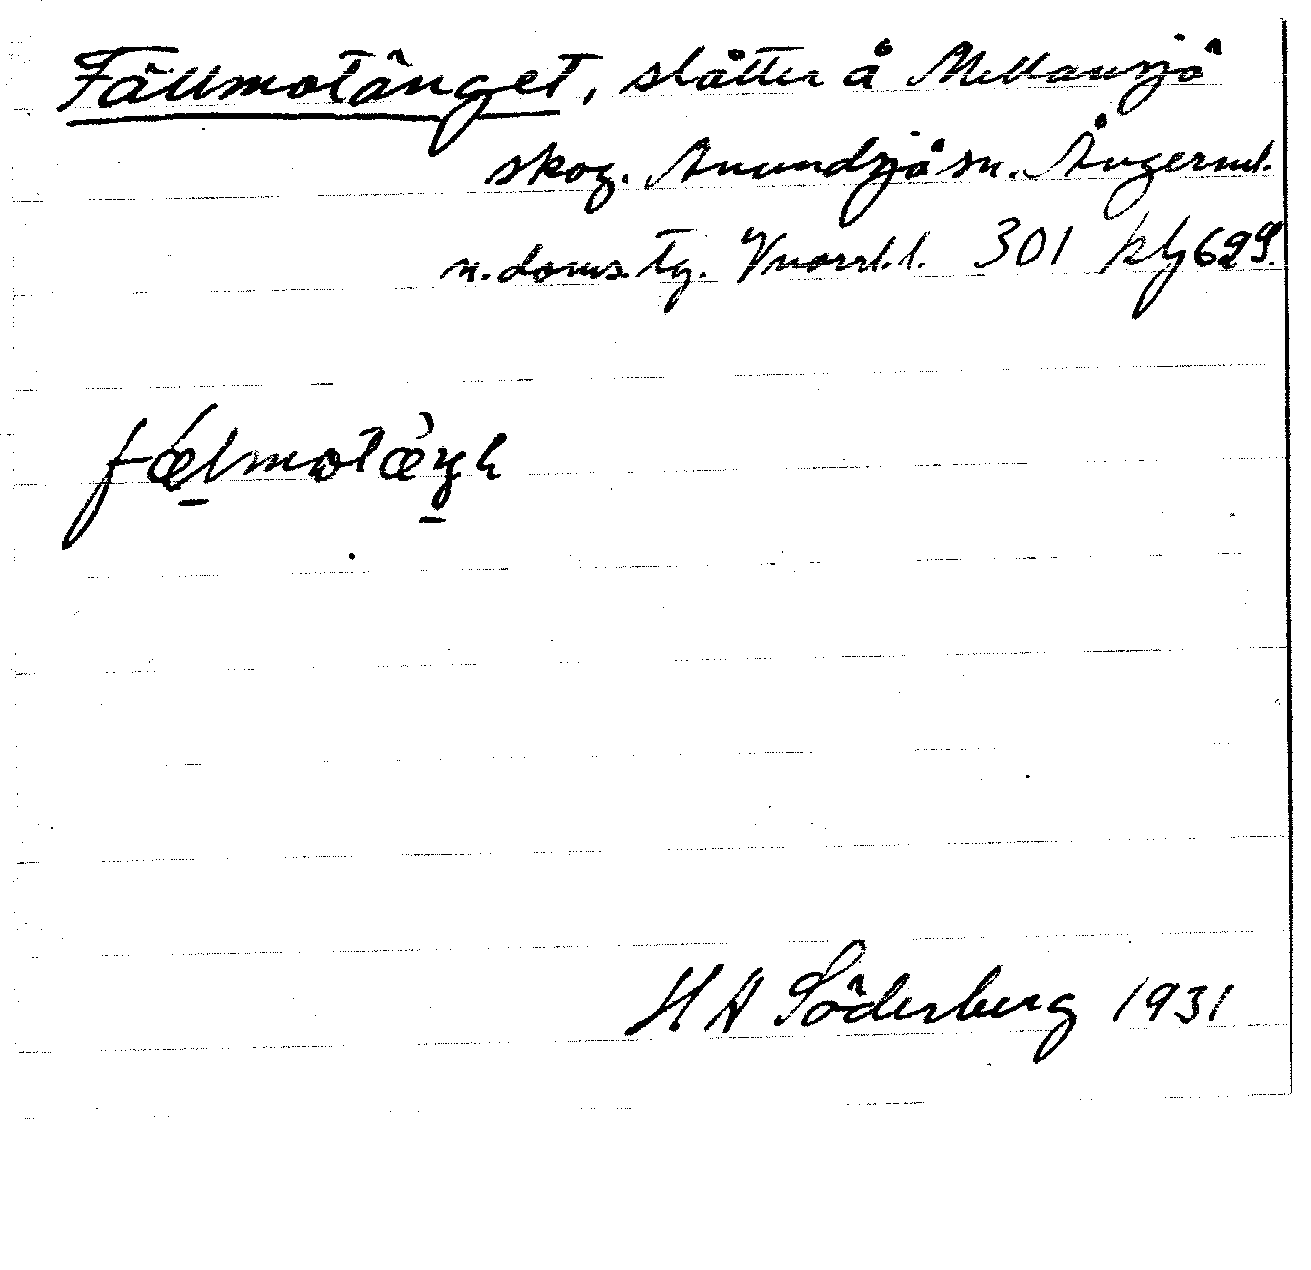 Fällmotänget, slåtter å Mellansjö
skog. Anundsjö sn. Ångerml.
n. doms. tg. Vnorrl. l. 301 klj 629.
fæ̀lmotæ̀ŋɛ
H A Söderberg 1931